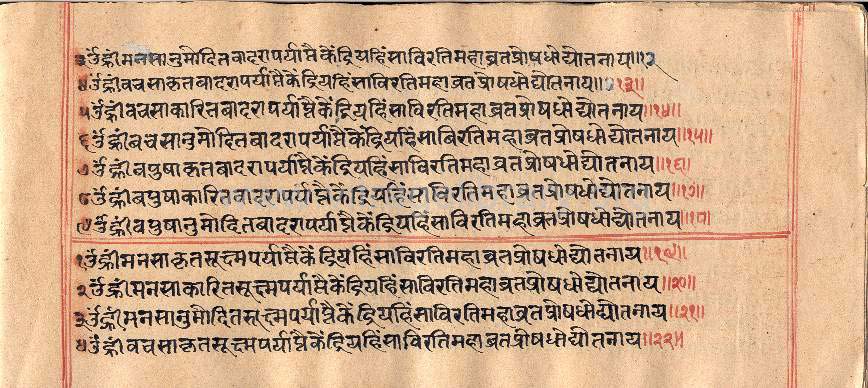 ३ र्उँह्रीं मनसानुमोदितबादरापर्याप्तैकेंद्रियहिंसाविरतिमहाव्रतप्रोषधोद्योतनाय॥१२
४ र्उँह्रीं वचसाकृतबादरापर्याप्तैकेंद्रियहिंसाविरतिमहाव्रतप्रोषधोद्योतनाय॥१३॥
५ र्उँह्रीं वचसाकारितबादरापर्याप्तैकेंद्रियहिंसाविरतिमहाव्रतप्रोषधोद्योतनाय॥१४॥
६ र्उँह्रीं बचसानुमोदितबादरापर्याप्तैकेंद्रियहिंसाबिरतिमहाव्रतप्रोषधोद्योतनाय॥१५॥
७ र्उँह्रीं बपुषाकृतबादरापर्याप्तैकेंद्रियहिंसाविरतिमहाव्रतप्रोषधोद्योतनाय॥१६॥
८ र्उँह्रीं बपुषाकारितबादरापर्याप्तैकेंद्रियहिंसाविरतिमहाव्रतप्रोषधोद्योतनाय॥१७॥
९ र्उँह्रीं वपुषानुमोदितबादरापर्याप्तैकेंद्रियहिंसाविरतिमहाव्रतप्रोषधोद्योतनाय॥१८॥
१ र्उँह्रीं मनसाकृतसूक्ष्मपर्याप्तैकेंद्रियहिंसाविरतिमहाव्रतप्रोषधोद्योतनाय॥१९॥
२ र्उँह्रीं मनसाकारितसूक्ष्मपर्याप्तैकेंद्रियहिंसाविरतिमहाव्रतप्रोषधोद्योतनाय॥२०॥
३ र्उँह्रीं मनसानुमोदितसूक्ष्मपर्याप्तैकेंद्रियहिंसाविरतिमहाव्रतप्रोषधोद्योतनाय॥२१॥
४ र्उँह्रीं वचसाकृतसूक्ष्मपर्याप्तैकेंद्रियहिंसाविरतिमहाव्रतप्रोषधोद्योतनाय॥२२॥